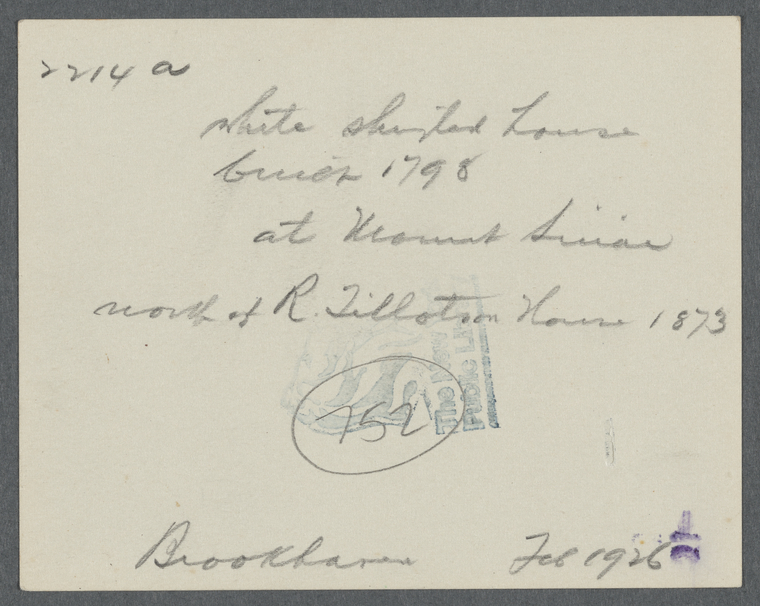 2214 a
white shingled house
built 1798
at Mount Sinai
north of R. Tillotson House 1873
The New
Public Li
752
Brookhaven Feb 1926